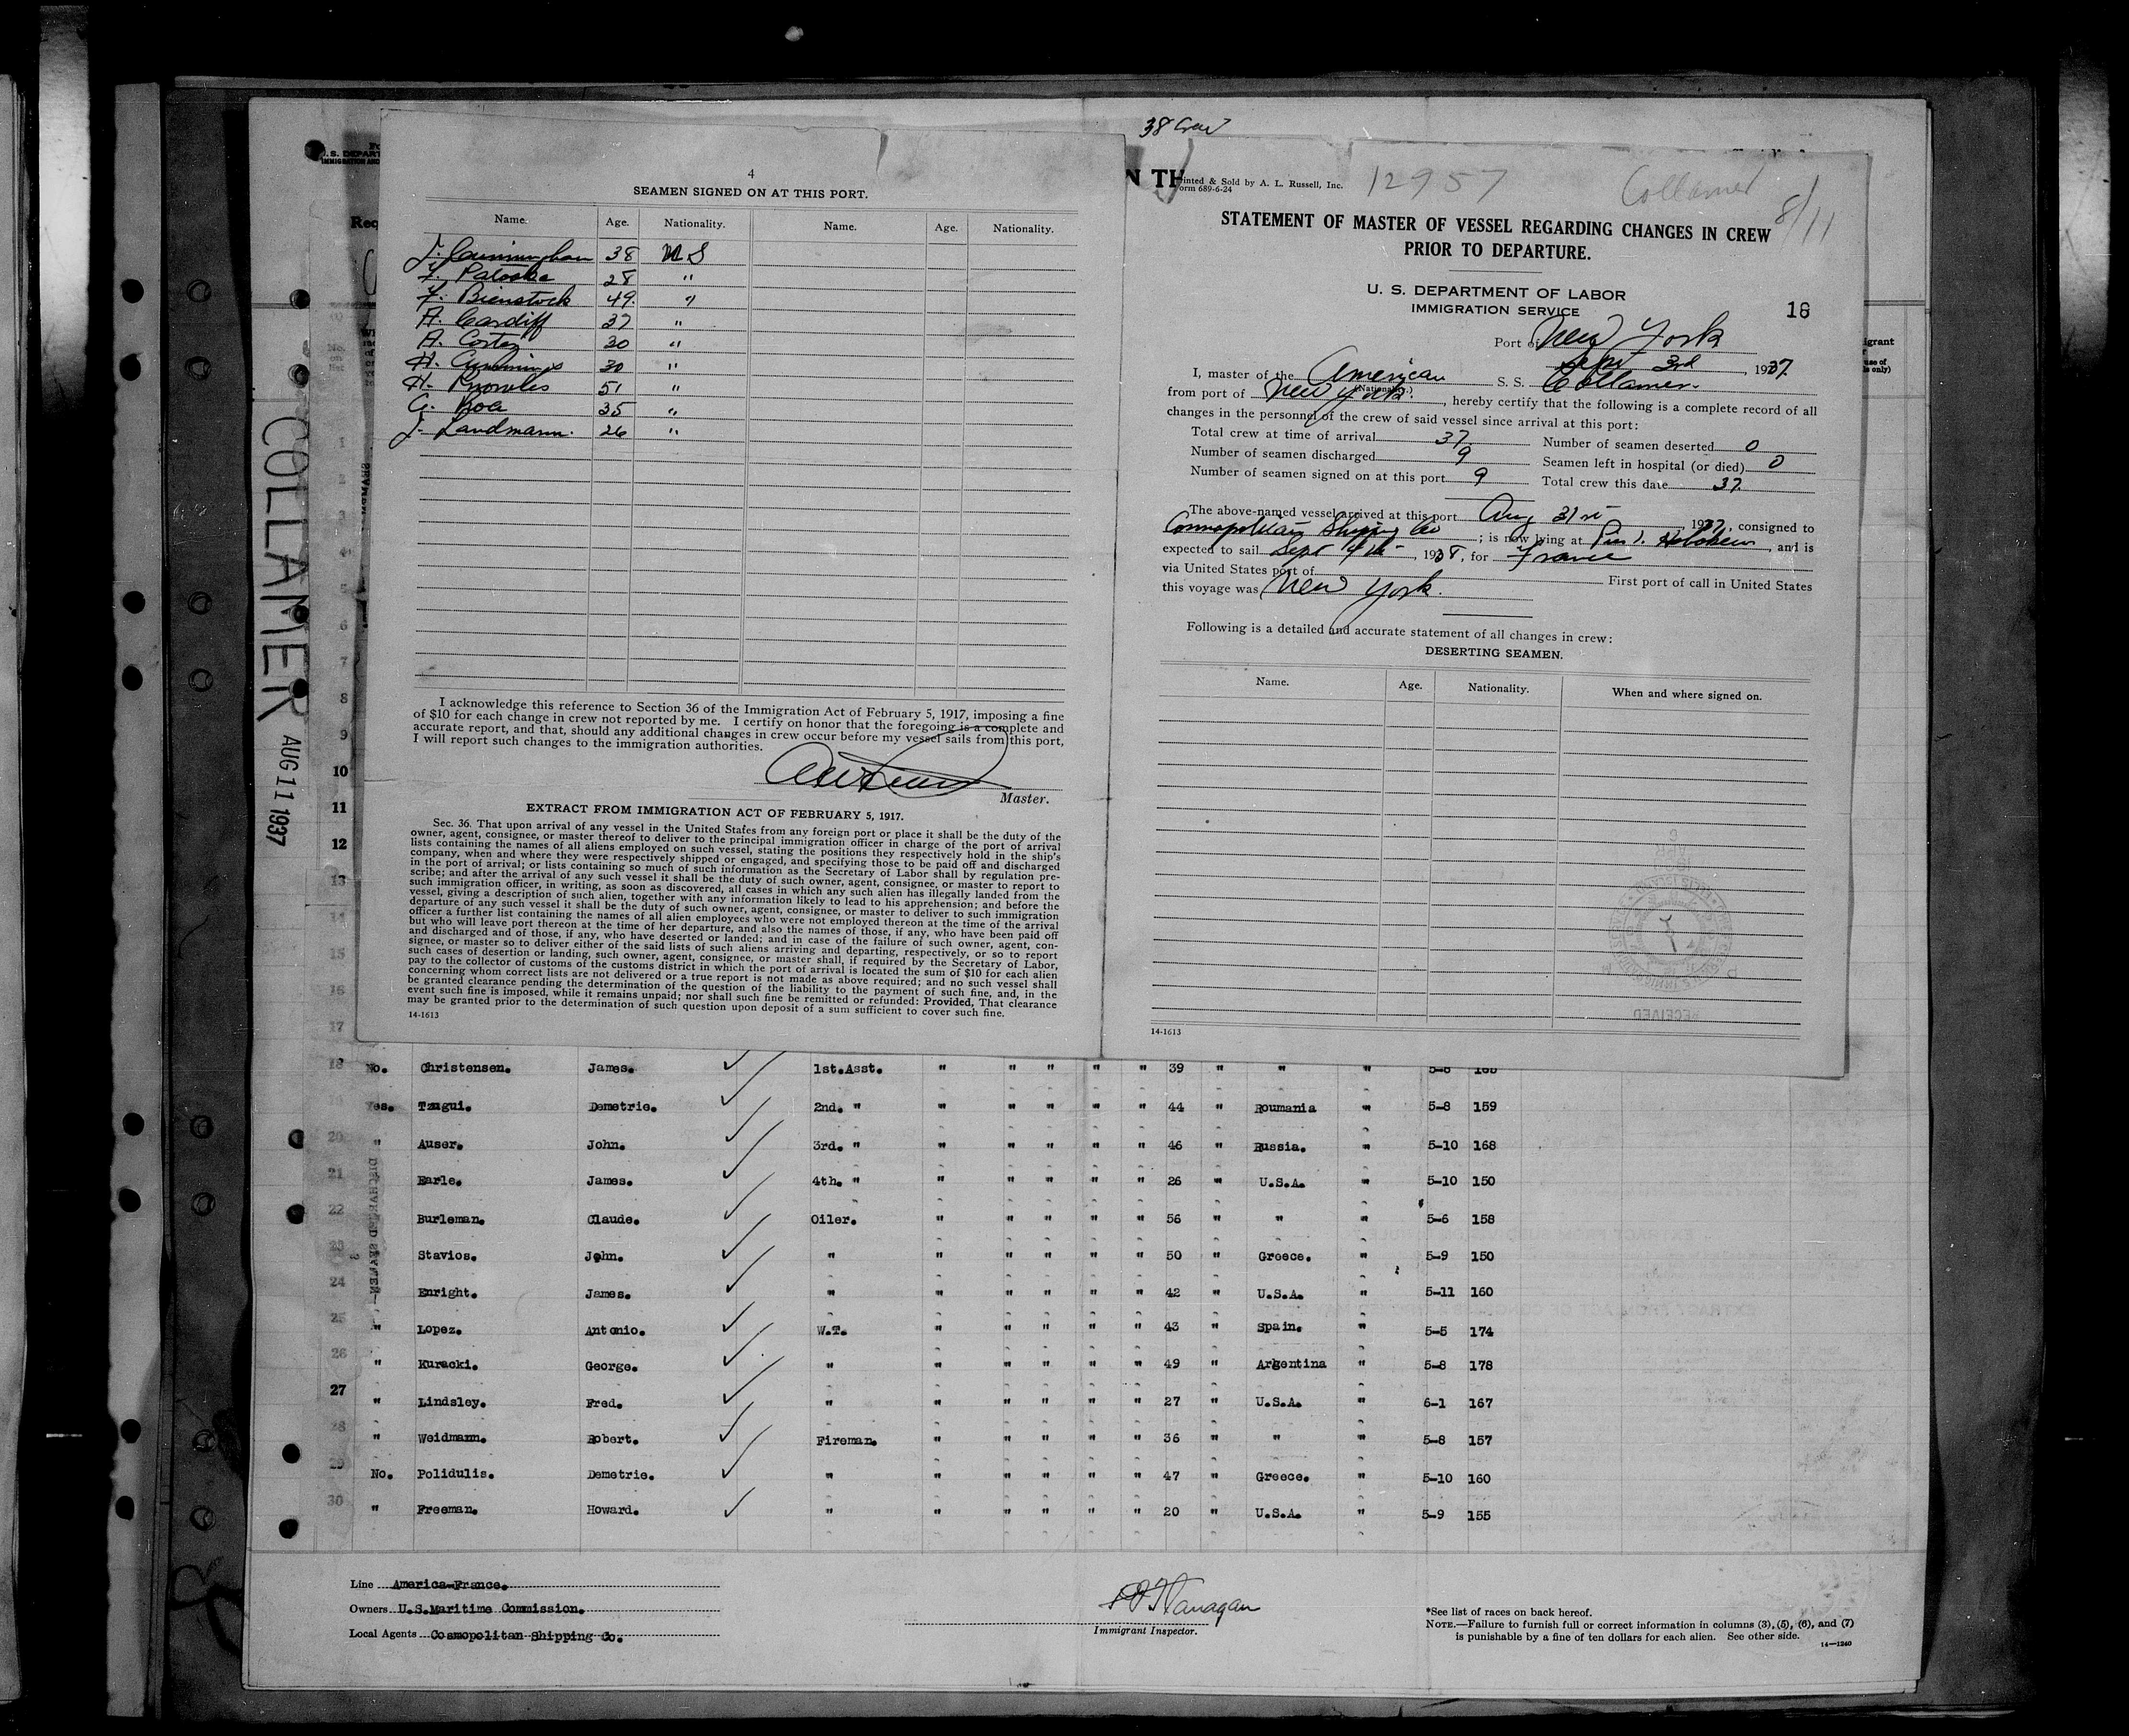 38 Crew
COLLAMER AUG 11 1937
4
SEAMEN SIGNED ON AT THIS PORT.
Name. Age. Nationality. Name. Age. Nationality.
J. Cunningham 38 U S
28 "
F. Bienstock 49 "
A. Cardiff 37 "
A. Cortez 30 "
H. Cummings 30 "
H. Knowles 51 "
G. 35 "
J. Landmann. 26 "
I acknowledge this reference to Section 36 of the Immigration Act of February 5, 1917, imposing a fine
of $10 for each change in crew not reported by me. I certify on honor that the foregoing is a complete and
accurate report, and that, should any additional changes in crew occur before my vessel sails from this port,
I will report such changes to the immigration authorities.
Master.
EXTRACT FROM IMMIGRATION ACT OF FEBRUARY 5, 1917.
Sec. 36. That upon arrival of any vessel in the United States from any foreign port or place it shall be the duty of the
owner, agent, consignee, or master thereof to deliver to the principal immigration officer in charge of the port of arrival
lists containing the names of all aliens employed on such vessel, stating the positions they respectively hold in the ship's
company, when and where they were respectively shipped or engaged, and specifying those to be paid off and discharged
in the port of arrival; or lists containing so much of such information as the Secretary of Labor shall by regulation pre-
scribe; and after the arrival of any such vessel it shall be the duty of such owner, agent, consignee, or master to report to
such immigration officer, in writing, as soon as discovered, all cases in which any such alien has illegally landed from the
vessel, giving a description of such alien, together with any information likely to lead to his apprehension; and before the
departure of any such vessel it shall be the duty of such owner, agent, consignee, or master to deliver to such immigration
officer a further list containing the names of all alien employees who were not employed thereon at the time of the arrival
but who will leave port thereon at the time of her departure, and also the names of those, if any, who have been paid off
and discharged and of those, if any, who have deserted or landed; and in case of the failure of such owner, agent, con-
signee, or master so to deliver either of the said lists of such aliens arriving and departing, respectively, or so to report
such cases of desertion or landing, such owner, agent, consignee, or master shall, if required by the Secretary of Labor,
pay to the collector of customs of the customs district in which the port of arrival is located the sum of $10 for each alien
concerning whom correct lists are not delivered or a true report is not made as above required; and no such vessel shall
be granted clearance pending the determination of the question of the liability to the payment of such fine, and, in the
event such fine is imposed, while it remains unpaid; nor shall such fine be remitted or refunded: Provided, That clearance
may be granted prior to the determination of such question upon deposit of a sum sufficient to cover such fine.
14-1613
inted & Sold by A. L. Russell, Inc.
orm 689-6-24
12957
Collamer
8/11
STATEMENT OF MASTER OF VESSEL REGARDING CHANGES IN CREW
PRIOR TO DEPARTURE.
U. S. DEPARTMENT OF LABOR
IMMIGRATION SERVICE
18
Port of New York
Sept 3rd, 1937
I, master of the American S. S. Collamer.
(Nationality.)
from port of New York, hereby certify that the following is a complete record of all
changes in the personnel of the crew of said vessel since arrival at this port:
Total crew at time of arrival 37 Number of seamen deserted 0
Number of seamen discharged 9 Seamen left in hospital (or died) 0
Number of seamen signed on at this port 9 Total crew this date 37
The above-named vessel arrived at this port Aug 31st, 1937, consigned to
Cosmopolitan Shipping Co; is now lying at Pier 1. Hoboken, and is
expected to sail Sept 4th, 1938, for France
via United States port of First port of call in United States
this voyage was New York.
Following is a detailed and accurate statement of all changes in crew:
DESERTING SEAMEN.
Name. Age. Nationality. When and where signed on.
RECEIVED
14-1613
18 No. Christensen. James. 1st.Asst. " " " " " 39 " " " 5-8
19 Yes. Tzugui. Demetrie. 2nd. " " " " " " 44 " Roumania " 5-8 159
20 " Auser. John. 3rd. " " " " " " 46 " Russia. " 5-10 168
21 Earle. James. 4th. " " " " " " 26 " U.S.A. " 5-10 150
22 Burleman. Claude. Oiler. " " " " " 56 " " " 5-6 158
23 Stavios. John. " " " " " " 50 " Greece. " 5-9 150
24 Enright. James. " " " " " " 42 " U.S.A. " 5-11 160
25 " Lopez. Antonio. W.T. " " " " " 43 " Spain. " 5-5 174
26 " Kuracki. George. " " " " " " 49 " Argentina " 5-8 178
27 " Lindsley. Fred. " " " " " " 27 " U.S.A. " 6-1 167
28 " Weidmann. Robert. Fireman. " " " " " 36 " " " 5-8 157
29 No. Polidulis. Demetrie. " " " " " " 47 " Greece. " 5-10 160
30 " Freeman. Howard. " " " " " " 20 " U.S.A. " 5-9 155
Line America-France.
Owners U.S.Maritime Commission.
Local Agents Cosmopolitan Shipping Co.
Flanagan
Immigrant Inspector.
*See list of races on back hereof.
NOTE.—Failure to furnish full or correct information in columns (3), (5), (6), and (7)
is punishable by a fine of ten dollars for each alien. See other side.
14-1240